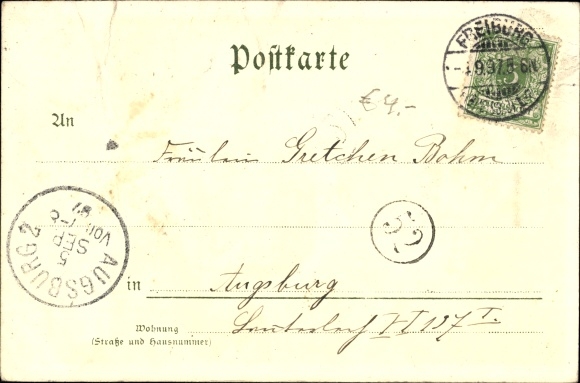 Postkarte
FREIBURG
9.97. 5-6N.
€ 4.-
An
Fräulein Gretchen Bohm
AUGSBURG 2
5
SEP
VOR. 7-8
97
52
in Augsburg
Wohnung
(Straße und Hausnummer)